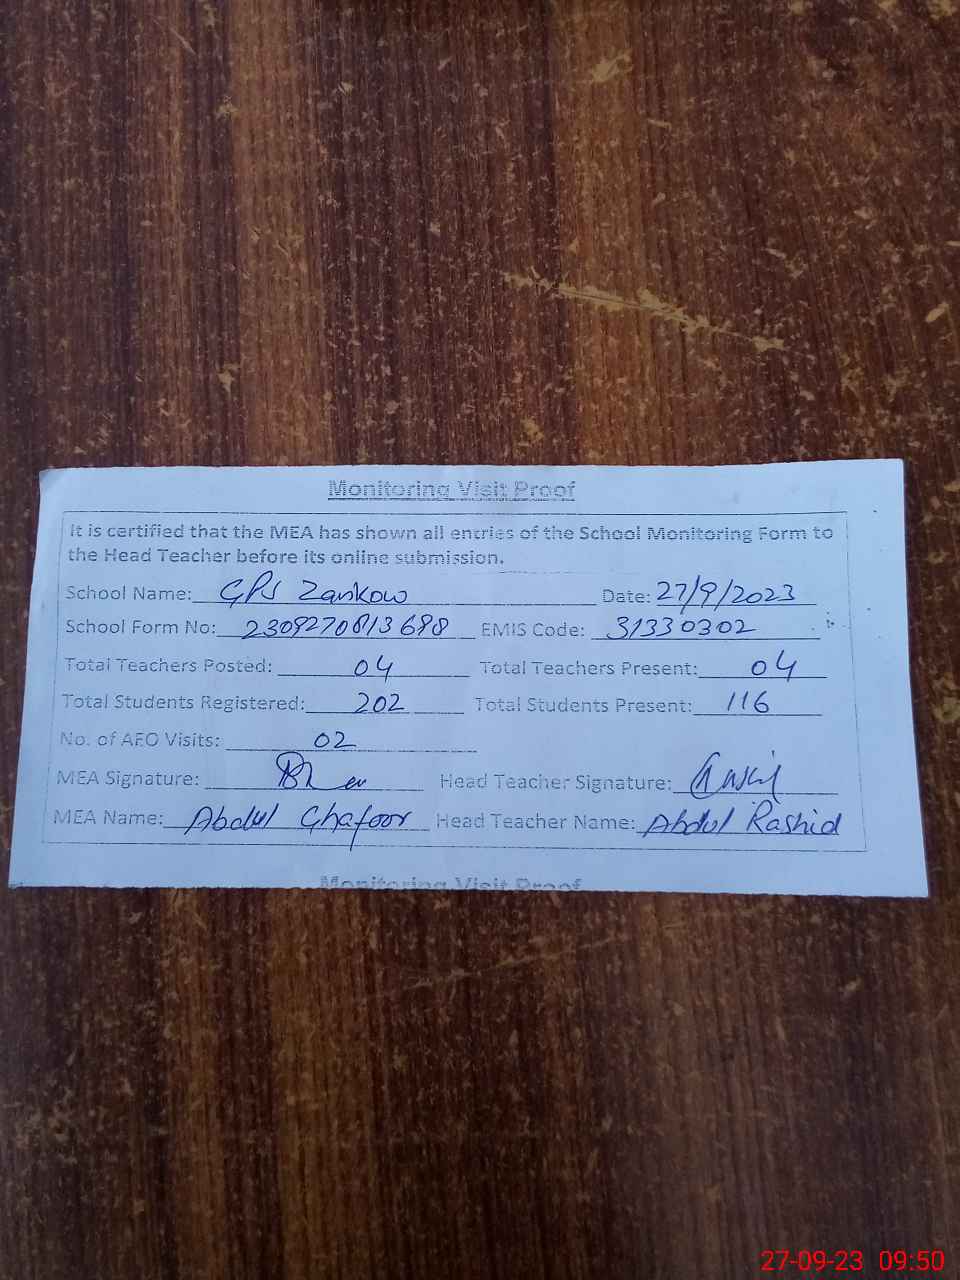 Monitoring Visit Proof
It is certified that the MEA has shown all entries of the School Monitoring Form to
the Head Teacher before its online submission.
School Name: GPS Zarikow Date: 27/9/2023
School Form No: 2309270813698 EMIS Code: 31330302
Total Teachers Posted: 04 Total Teachers Present: 04
Total Students Registered: 202 Total Students Present: 116
No. of AEO Visits: 02
MEA Signature: Head Teacher Signature:
MEA Name: Abdul Ghafoor Head Teacher Name: Abdul Rashid
Monitoring Visit Proof
27-09-23 09:50